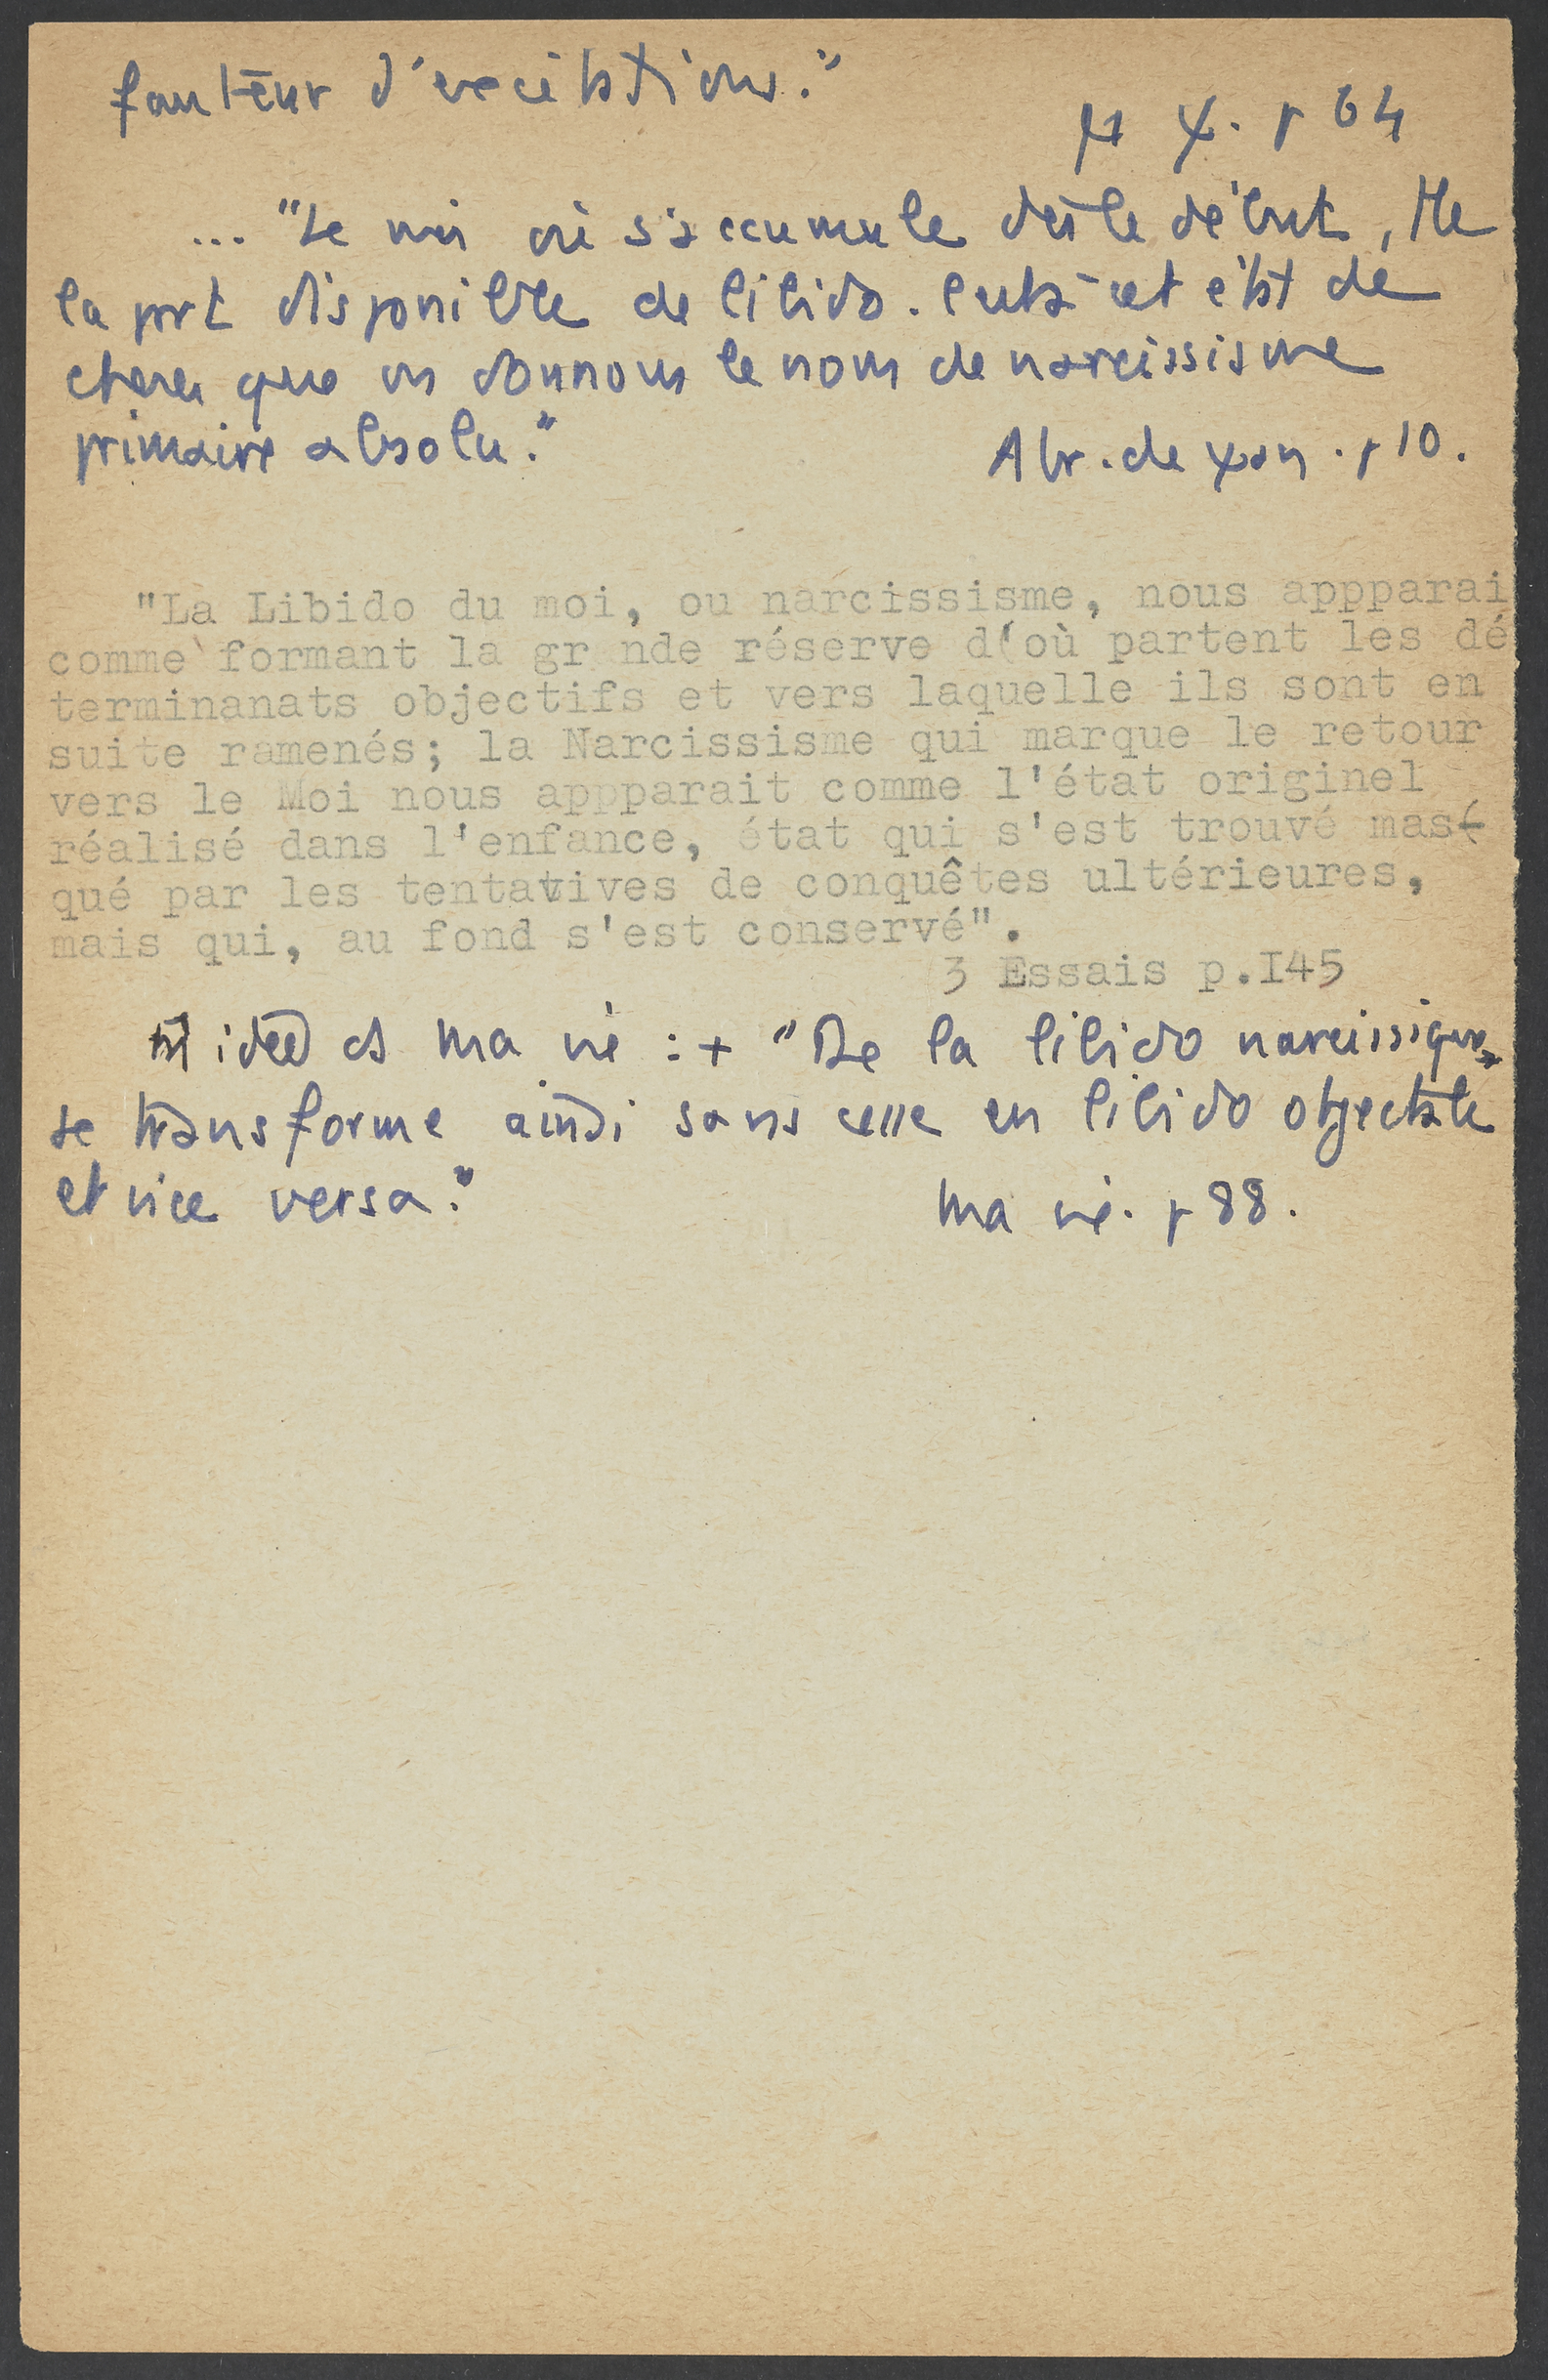 fauteur d'excitations."
ψ. p 64
... "Le moi où s'accumule dès le début, tte
la part disponible de libido. C'est à cet état de
choses que ns donnons le nom de narcissisme
primaire absolu."
Abr. de ψan. p 10.
"La Libido du moi, ou narcissisme, nous appparai
comme formant la gr nde réserve d(où partent les dé
terminanats objectifs et vers laquelle ils sont en
suite ramenés; la Narcissisme qui marque le retour
vers le Moi nous appparait comme l'état originel
réalisé dans l'enfance, état qui s'est trouvé mas(
qué par les tentatives de conquêtes ultérieures,
mais qui, au fond s'est conservé".
3 Essais p.I45
idée ds Ma vie : + "De la libido narcissique
se transforme ainsi sans cesse en libido objectale
et vice versa."
Ma vie. p 88.